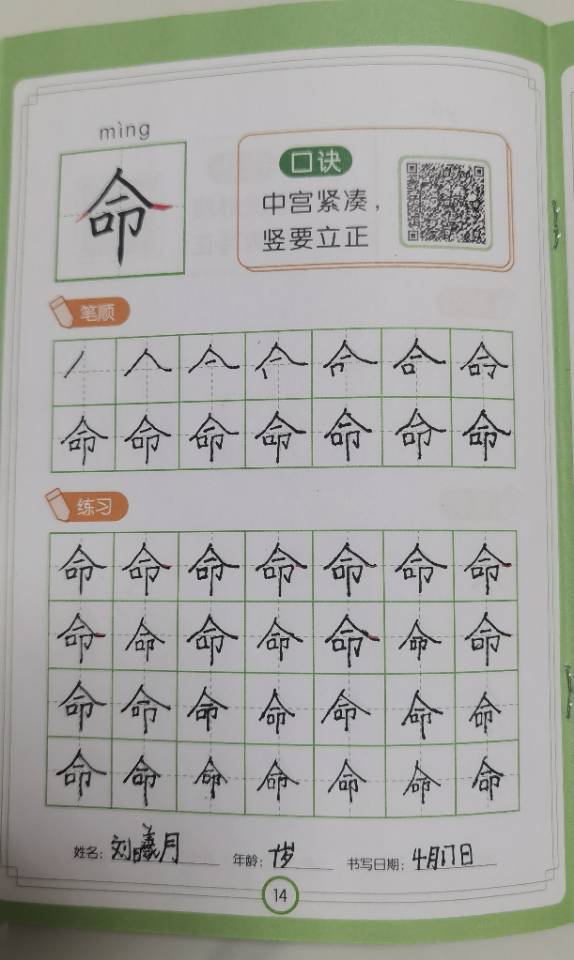 mìng
命
口诀
中宫紧凑，
竖要立正
笔顺
丿 人 亼 合
命 命 命 命 命 命 命
练习
命 命 命 命 命 命 命
命 命 命 命 命 命 命
命 命 命 命 命 命 命
命 命 命 命 命 命 命
姓名：刘曦月 年龄：7岁 书写日期：4月17日
14